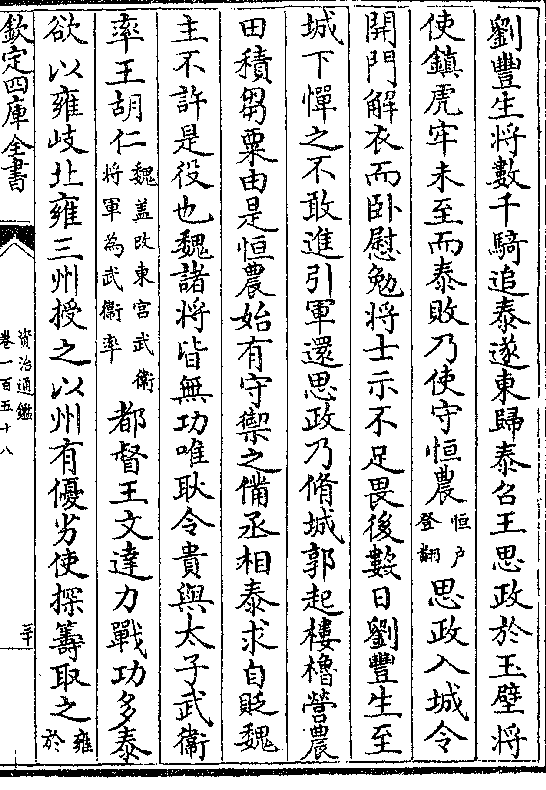 劉豐生将數千騎追泰遂東歸泰召王思政於玉壁将
使鎮虎牢未至而泰敗乃使守恒農恒户登翻思政入城令
開門解衣而卧慰勉将士示不足畏後數日劉豐生至
城下憚之不敢進引軍還思政乃脩城郭起樓櫓營農
田積芻粟由是恒農始有守禦之備丞相泰求自貶魏
主不許是役也魏諸将皆無功唯耿令貴與太子武衞
率王胡仁魏盖改東宫武衞将軍為武衞率都督王文達力戰功多泰
欲以雍岐北雍三州授之以州有優劣使探籌取之雍於
欽定四庫全書
資治通鑑
卷一百五十八
二十